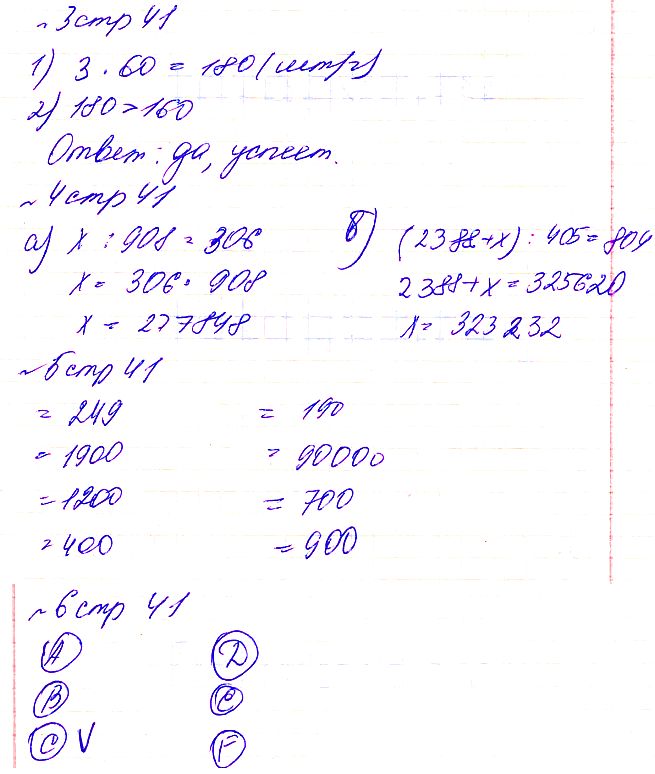 №3 стр 41
1) 3 · 60 = 180 (метр/ч)
2) 180 > 160
Ответ: да, успеет.
№4 стр 41
а) x : 908 = 306
x = 306 · 908
x = 277848
б) (2388+x) : 405 = 804
2388+x = 325620
x = 323232
№5 стр 41
= 249 = 190
= 1900 = 90000
= 1200 = 700
= 400 = 900
№6 стр 41
A D
B E
C V F